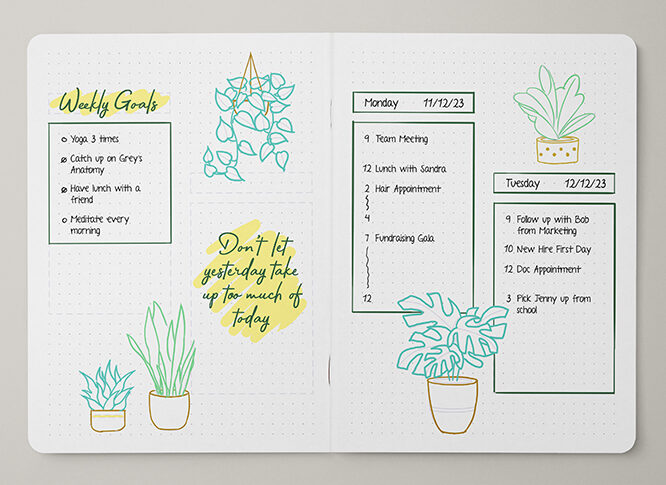 Weekly Goals
Yoga 3 times
Catch up on Grey's
Anatomy
Have lunch with a
friend
Meditate every
morning
Don't let
yesterday take
up too much of
today
Monday 11/12/23
9 Team Meeting
12 Lunch with Sandra
2 Hair Appointment
4
7 Fundraising Gala
12
Tuesday 12/12/23
9 Follow up with Bob
from Marketing
10 New Hire First Day
12 Doc Appointment
3 Pick Jenny up from
school